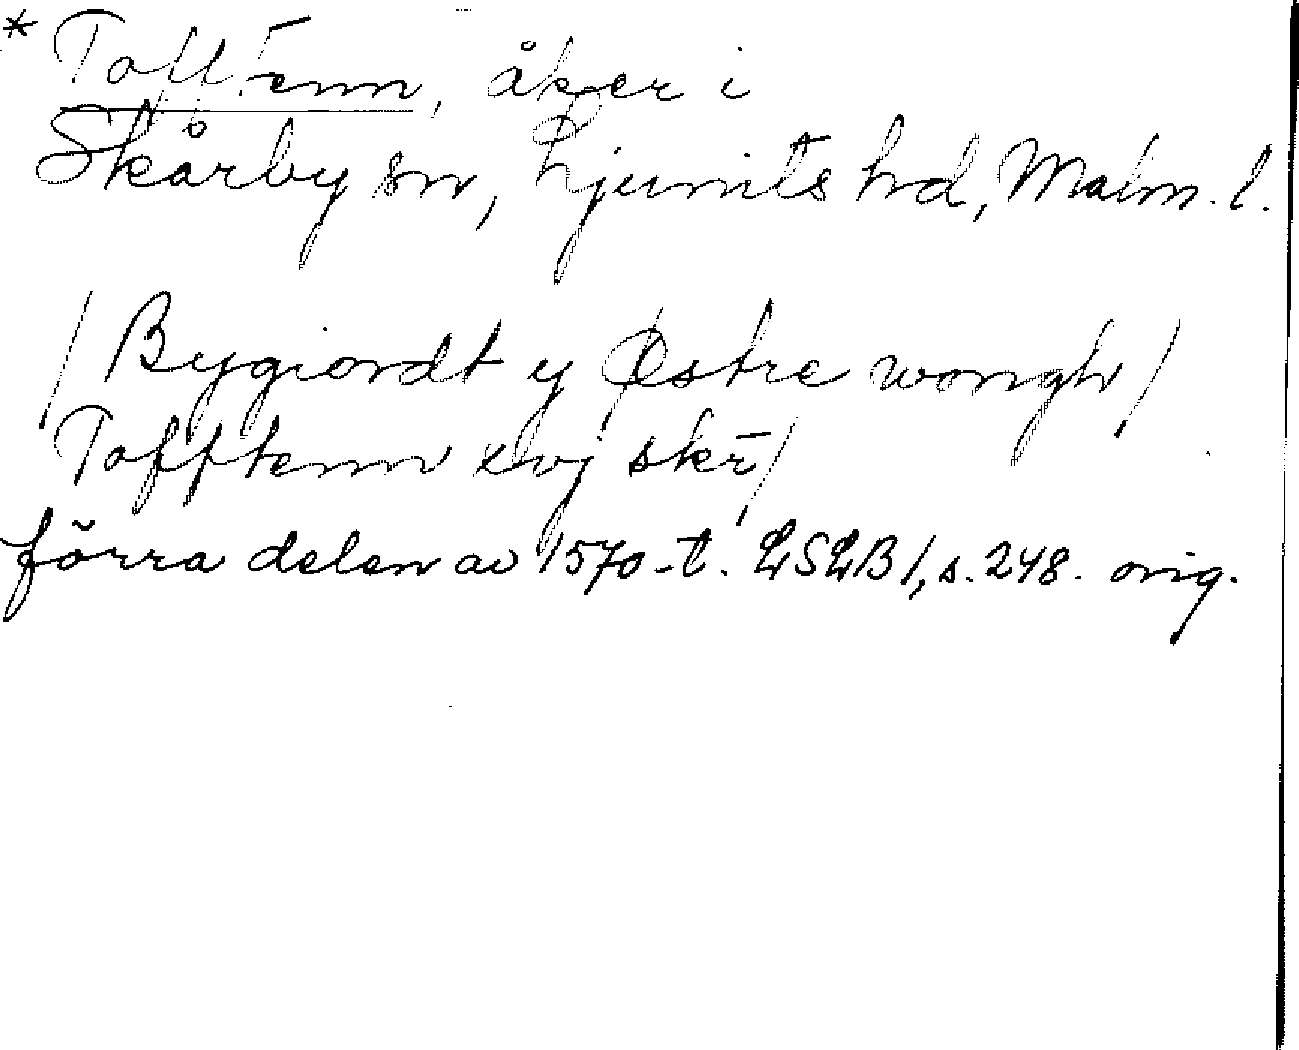 * Tofftenn, åker i
Skårby sn, Ljunits hd, Malm. l.
/ Bygiordt y Østre wongh /
Tofftenn xvj skr̄ /
förra delen av 1570-t. LSLB 1, s. 248. orig.